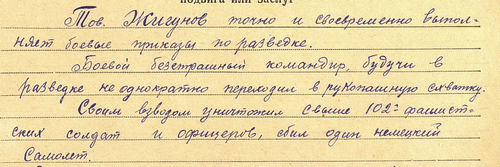 подвига или заслуг
Тов. Жигунов точно и своевременно выпол-
няет боевые приказы по разведке.
Боевой безстрашный командир, будучи в
разведке не однократно переходил в рукопашную схватку.
Своим взводом уничтожил свыше 102х фашист-
ских солдат и офицеров, сбил один немецкий
Самолет.